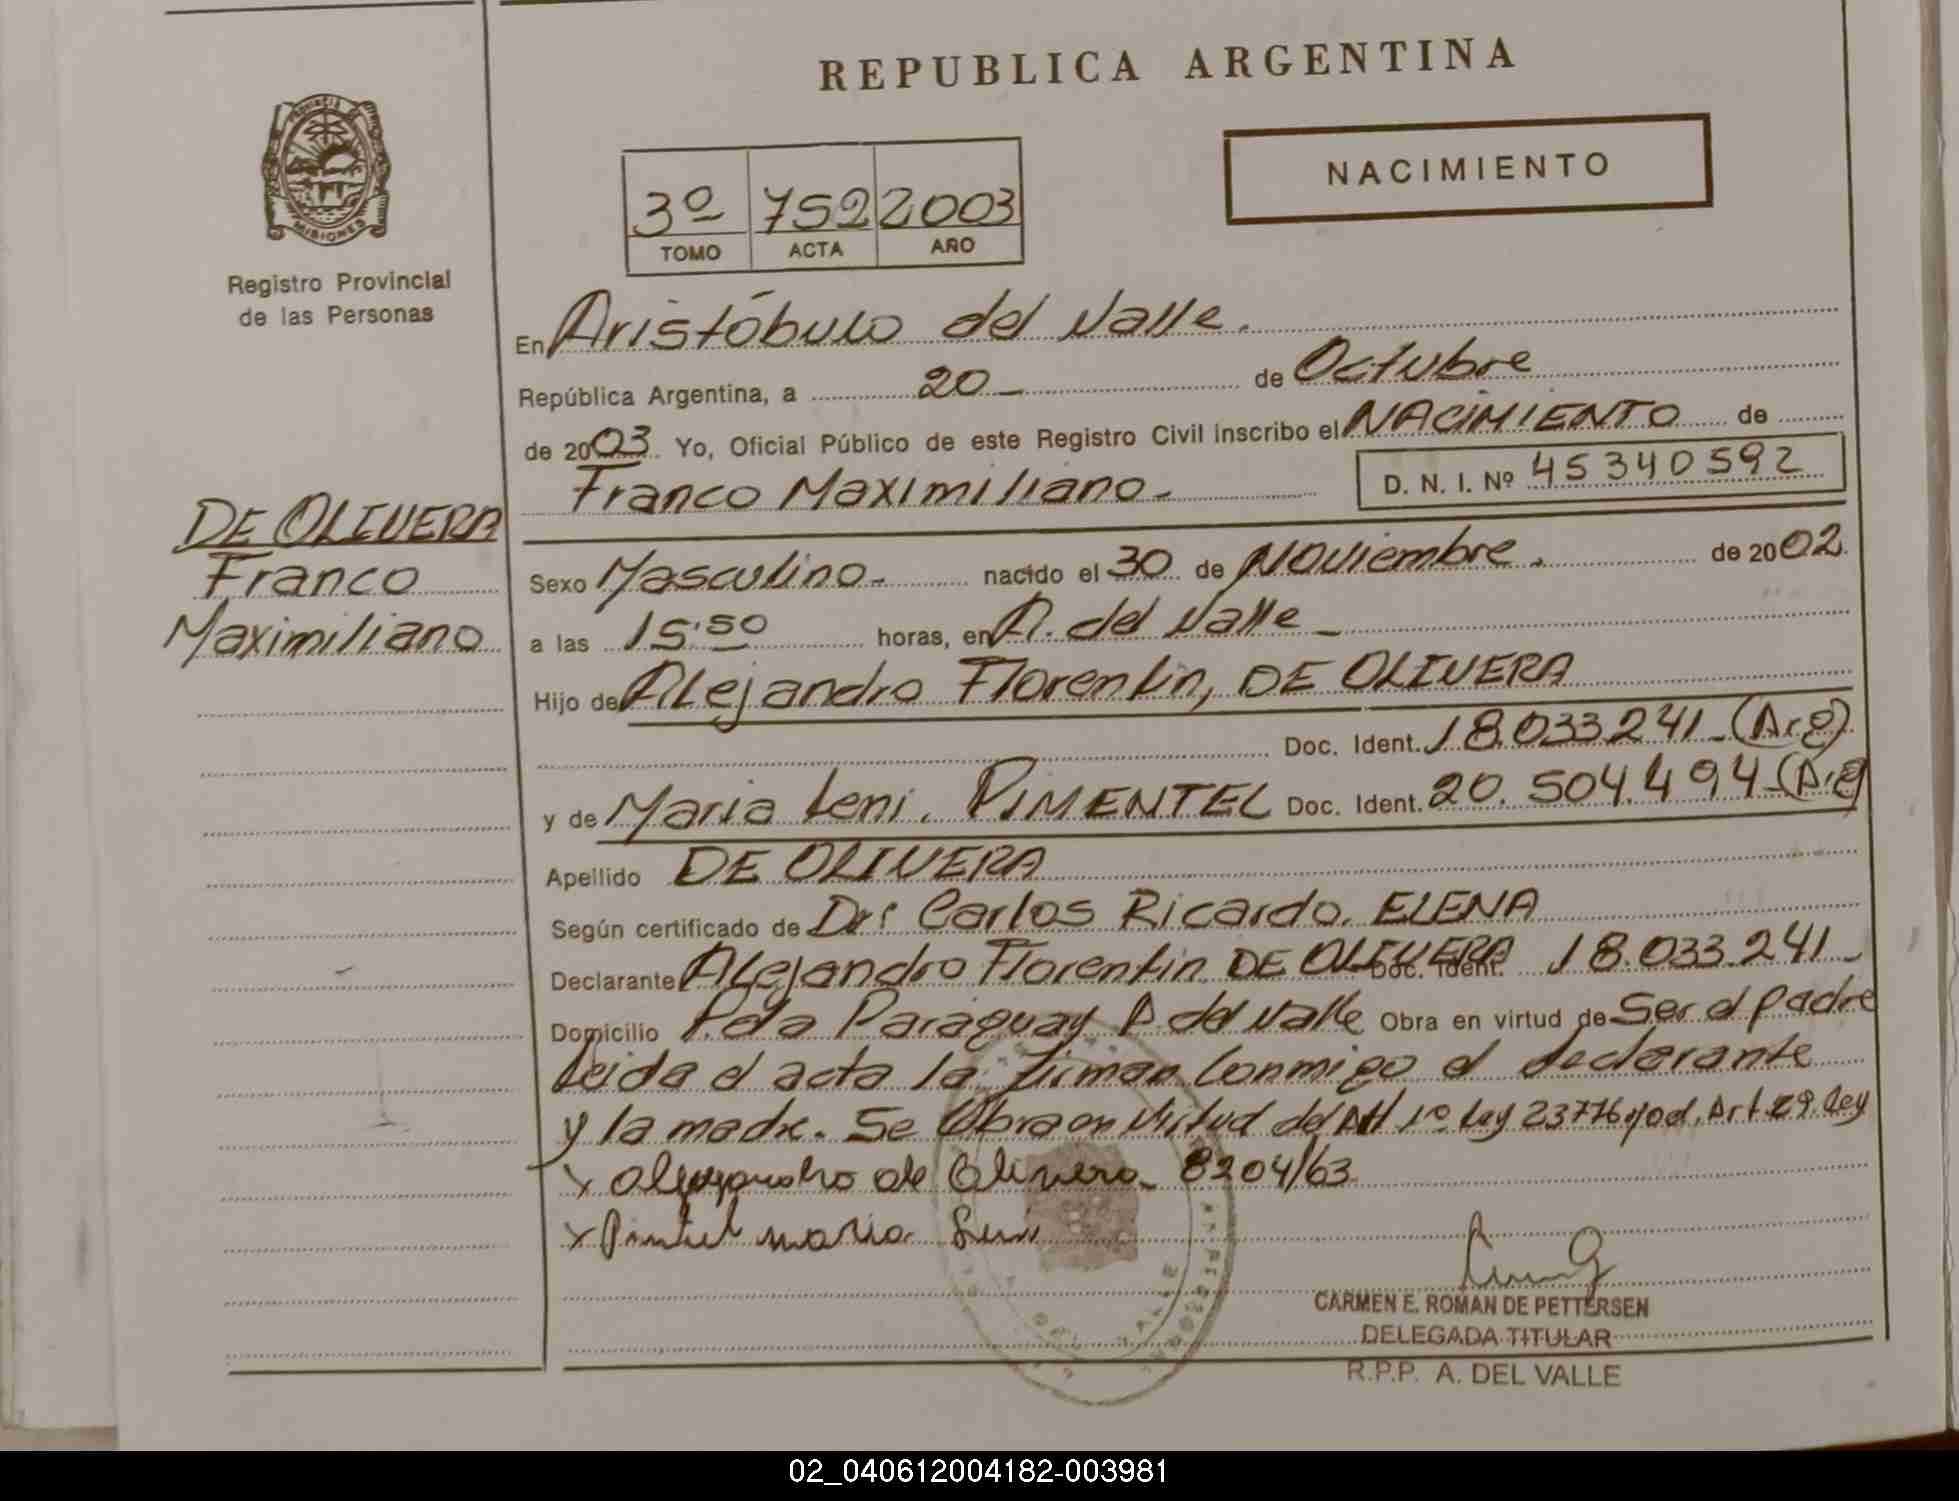 REPUBLICA ARGENTINA
NACIMIENTO
PROVINCIA DE
MISIONES
Registro Provincial
de las Personas
3º 752 2003
TOMO ACTA AÑO
En Aristóbulo del Valle.
República Argentina, a 20 de Octubre
de 2003. Yo, Oficial Público de este Registro Civil inscribo el NACIMIENTO de
Franco Maximiliano. D. N. I. Nº 45340592
DE OLIVERA
Franco
Maximiliano
Sexo Masculino. nacido el 30 de Noviembre. de 2002.
a las 15:50 horas, en A. del Valle
Hijo de Alejandro Florentin, DE OLIVERA
Doc. Ident. 18.033.241 (Arg)
y de Maria Leni. PIMENTEL Doc. Ident. 20.504.494 (Arg
Apellido DE OLIVERA
Según certificado de Dr: Carlos Ricardo. ELENA
Declarante Alejandro Florentin DE OLIVERA Doc. Ident. 18.033.241
Domicilio Paraguay A. del Valle Obra en virtud de Ser el padre
Leida el acta la firman Conmigo el declarante
y la madre. Se Obra en Virtud del Art 1º Ley 23776 Art. 29. Ley
x de Olivera 8204/63
x maria
CARMEN E. ROMAN DE PETTERSEN
DELEGADA TITULAR
R.P.P. A. DEL VALLE
02_040612004182-003981